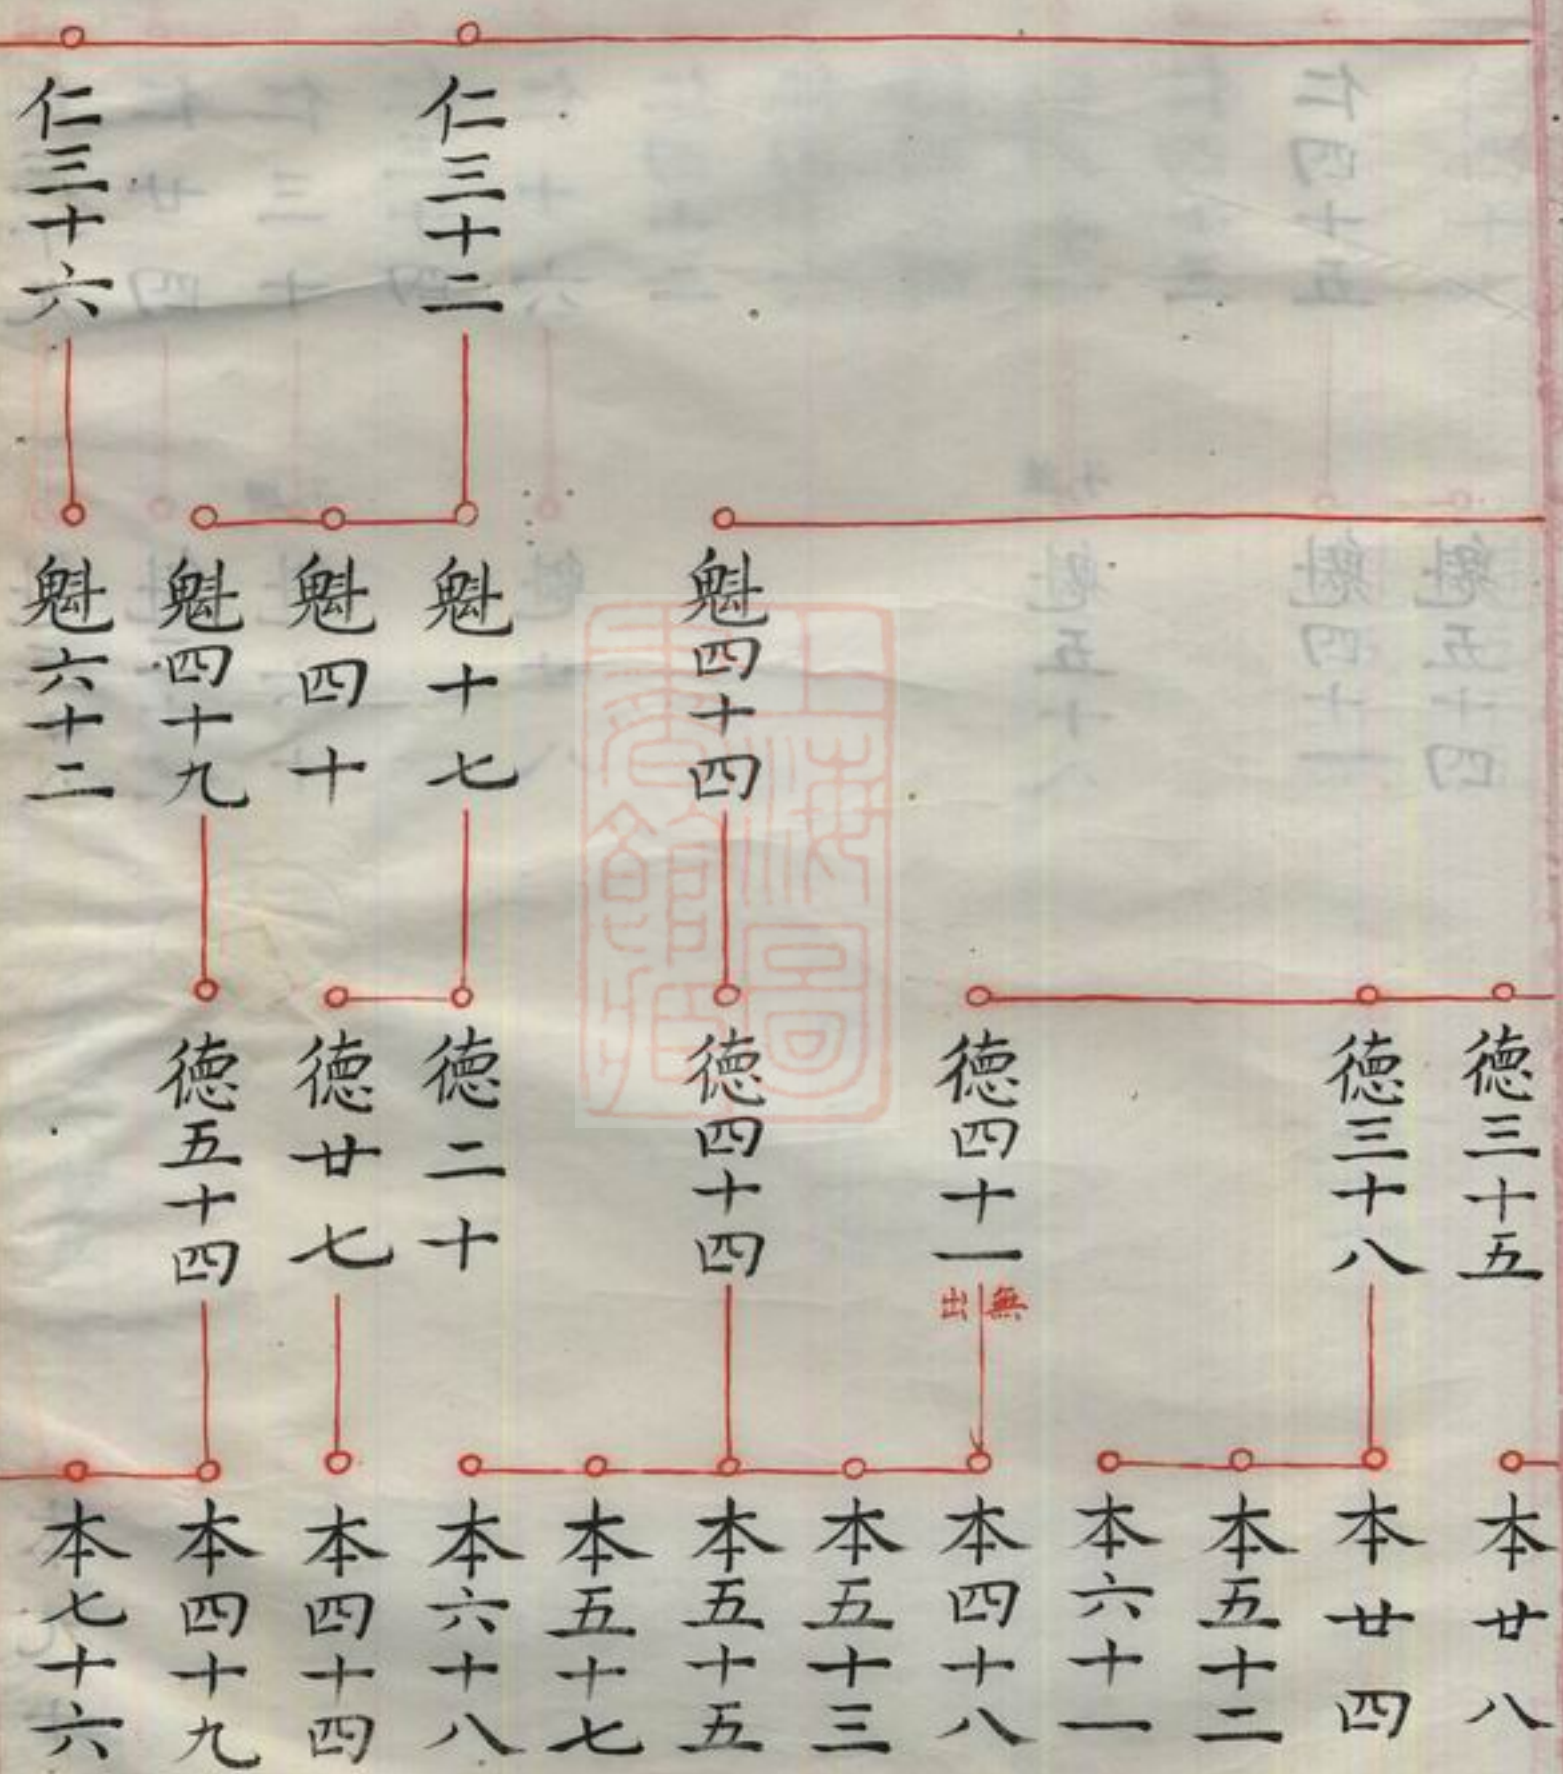 仁三十二
仁三十六
魁四十四
魁十七
魁四十
魁四十九
魁六十二
德三十五
德三十八
德四十一
無出
德四十四
德二十
德廿七
德五十四
本廿八
本廿四
本五十二
本六十一
本四十八
本五十三
本五十五
本五十七
本六十八
本四十四
本四十九
本七十六
上海圖書館藏